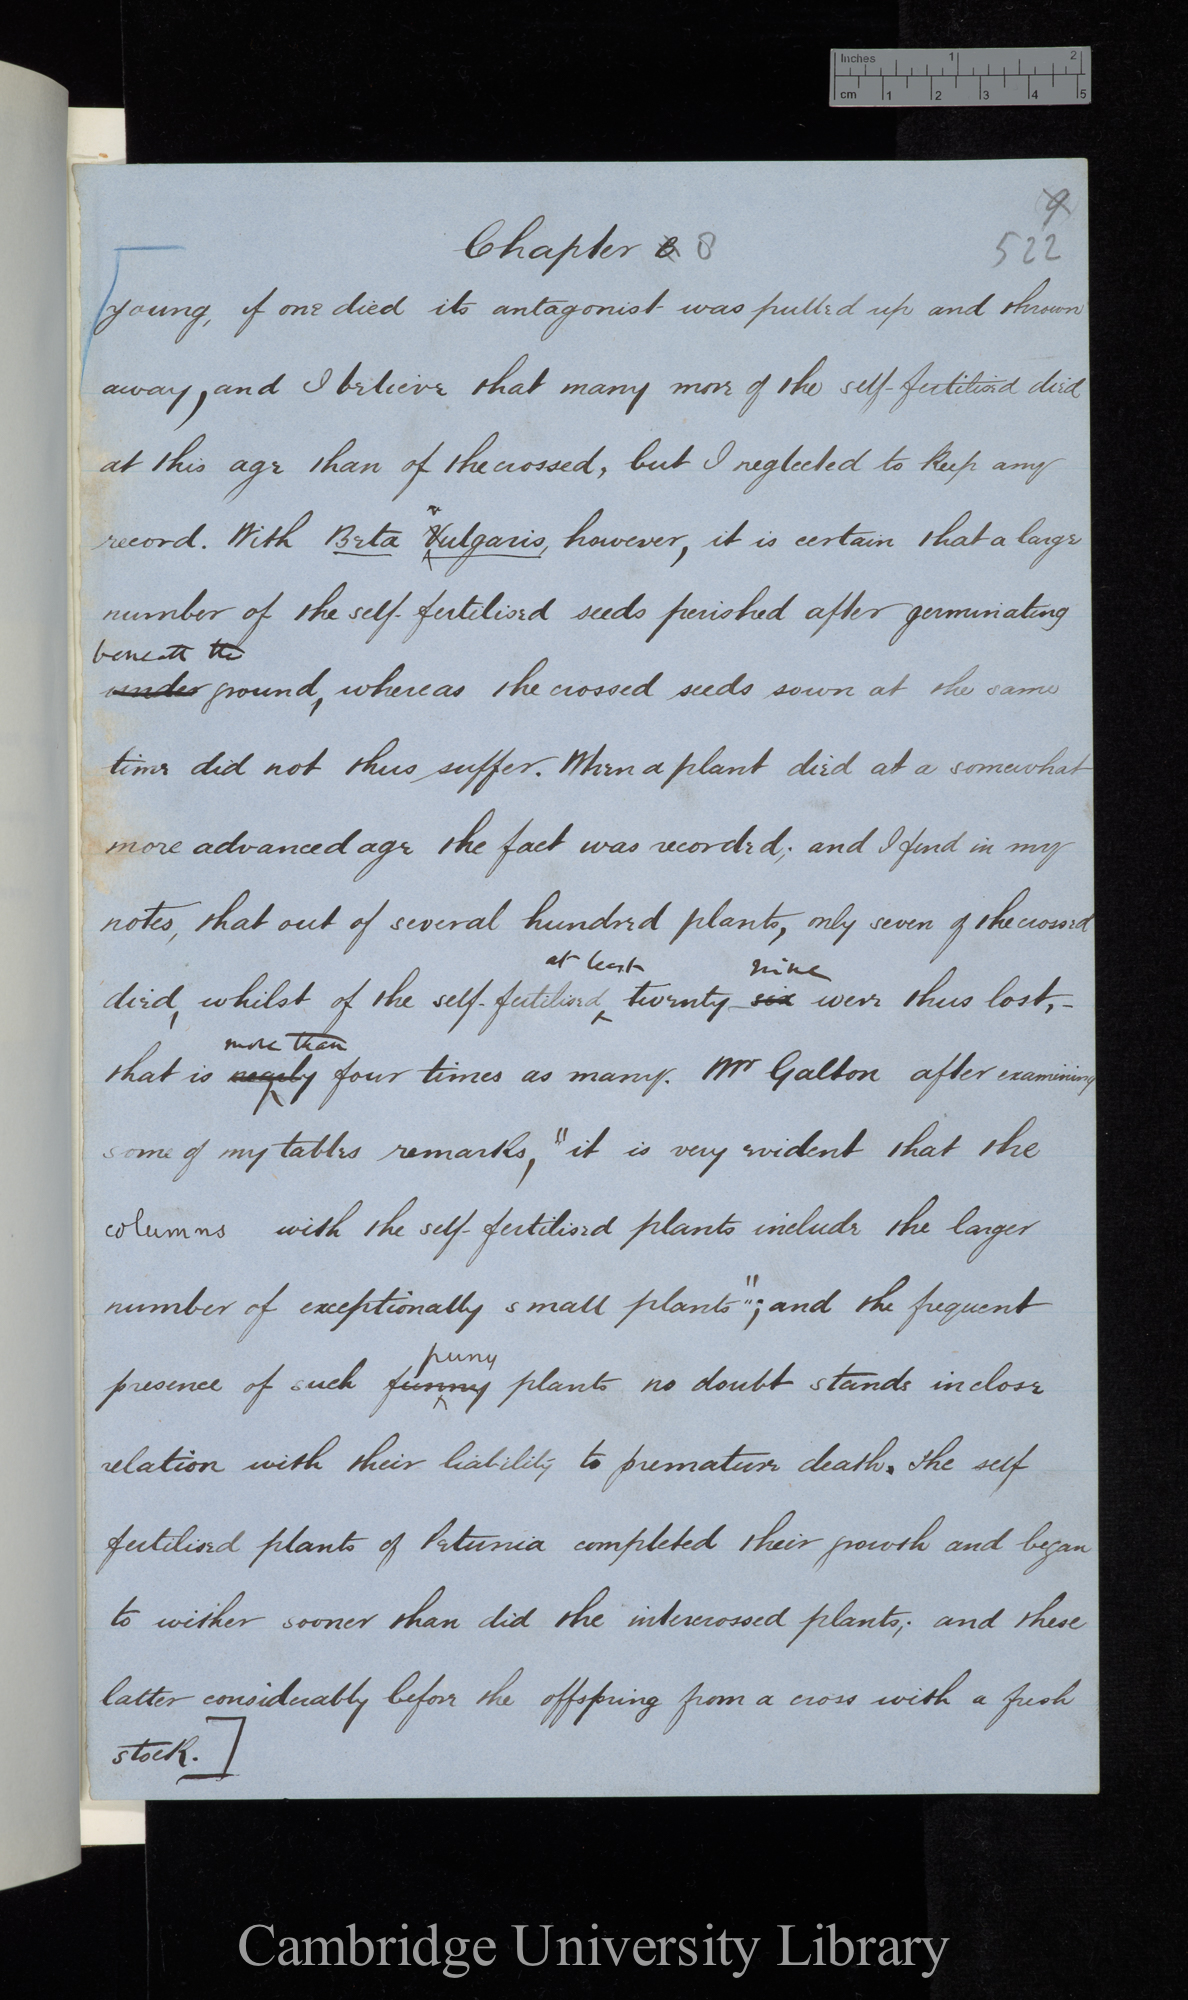 Inches 1 2
cm 1 2 3 4 5
9
522
Chapter 8 8
young, if one died its antagonist was pulled up and thrown
away, and I believe that many more of the self-fertilised died
at this age than of the crossed, but I neglected to keep any
record. With Beta vulgaris, however, it is certain that a large
number of the self-fertilised seeds perished after germinating
beneath the
under ground, whereas the crossed seeds sown at the same
time did not thus suffer. When a plant died at a somewhat
more advanced age the fact was recorded; and I find in my
notes, that out of several hundred plants, only seven of the crossed
at least nine
died, whilst of the self-fertilised twenty-six were thus lost,-
more than
that is nearly four times as many. Mr Galton after examining
some of my tables remarks, "it is very evident that the
columns with the self-fertilised plants include the larger
number of exceptionally small plants"; and the frequent
puny
presence of such funny plants no doubt stands in close
relation with their liability to premature death. The self
fertilised plants of Petunia completed their growth and began
to wither sooner than did the intercrossed plants; and these
latter considerably before the offspring from a cross with a fresh
stock.]
Cambridge University Library